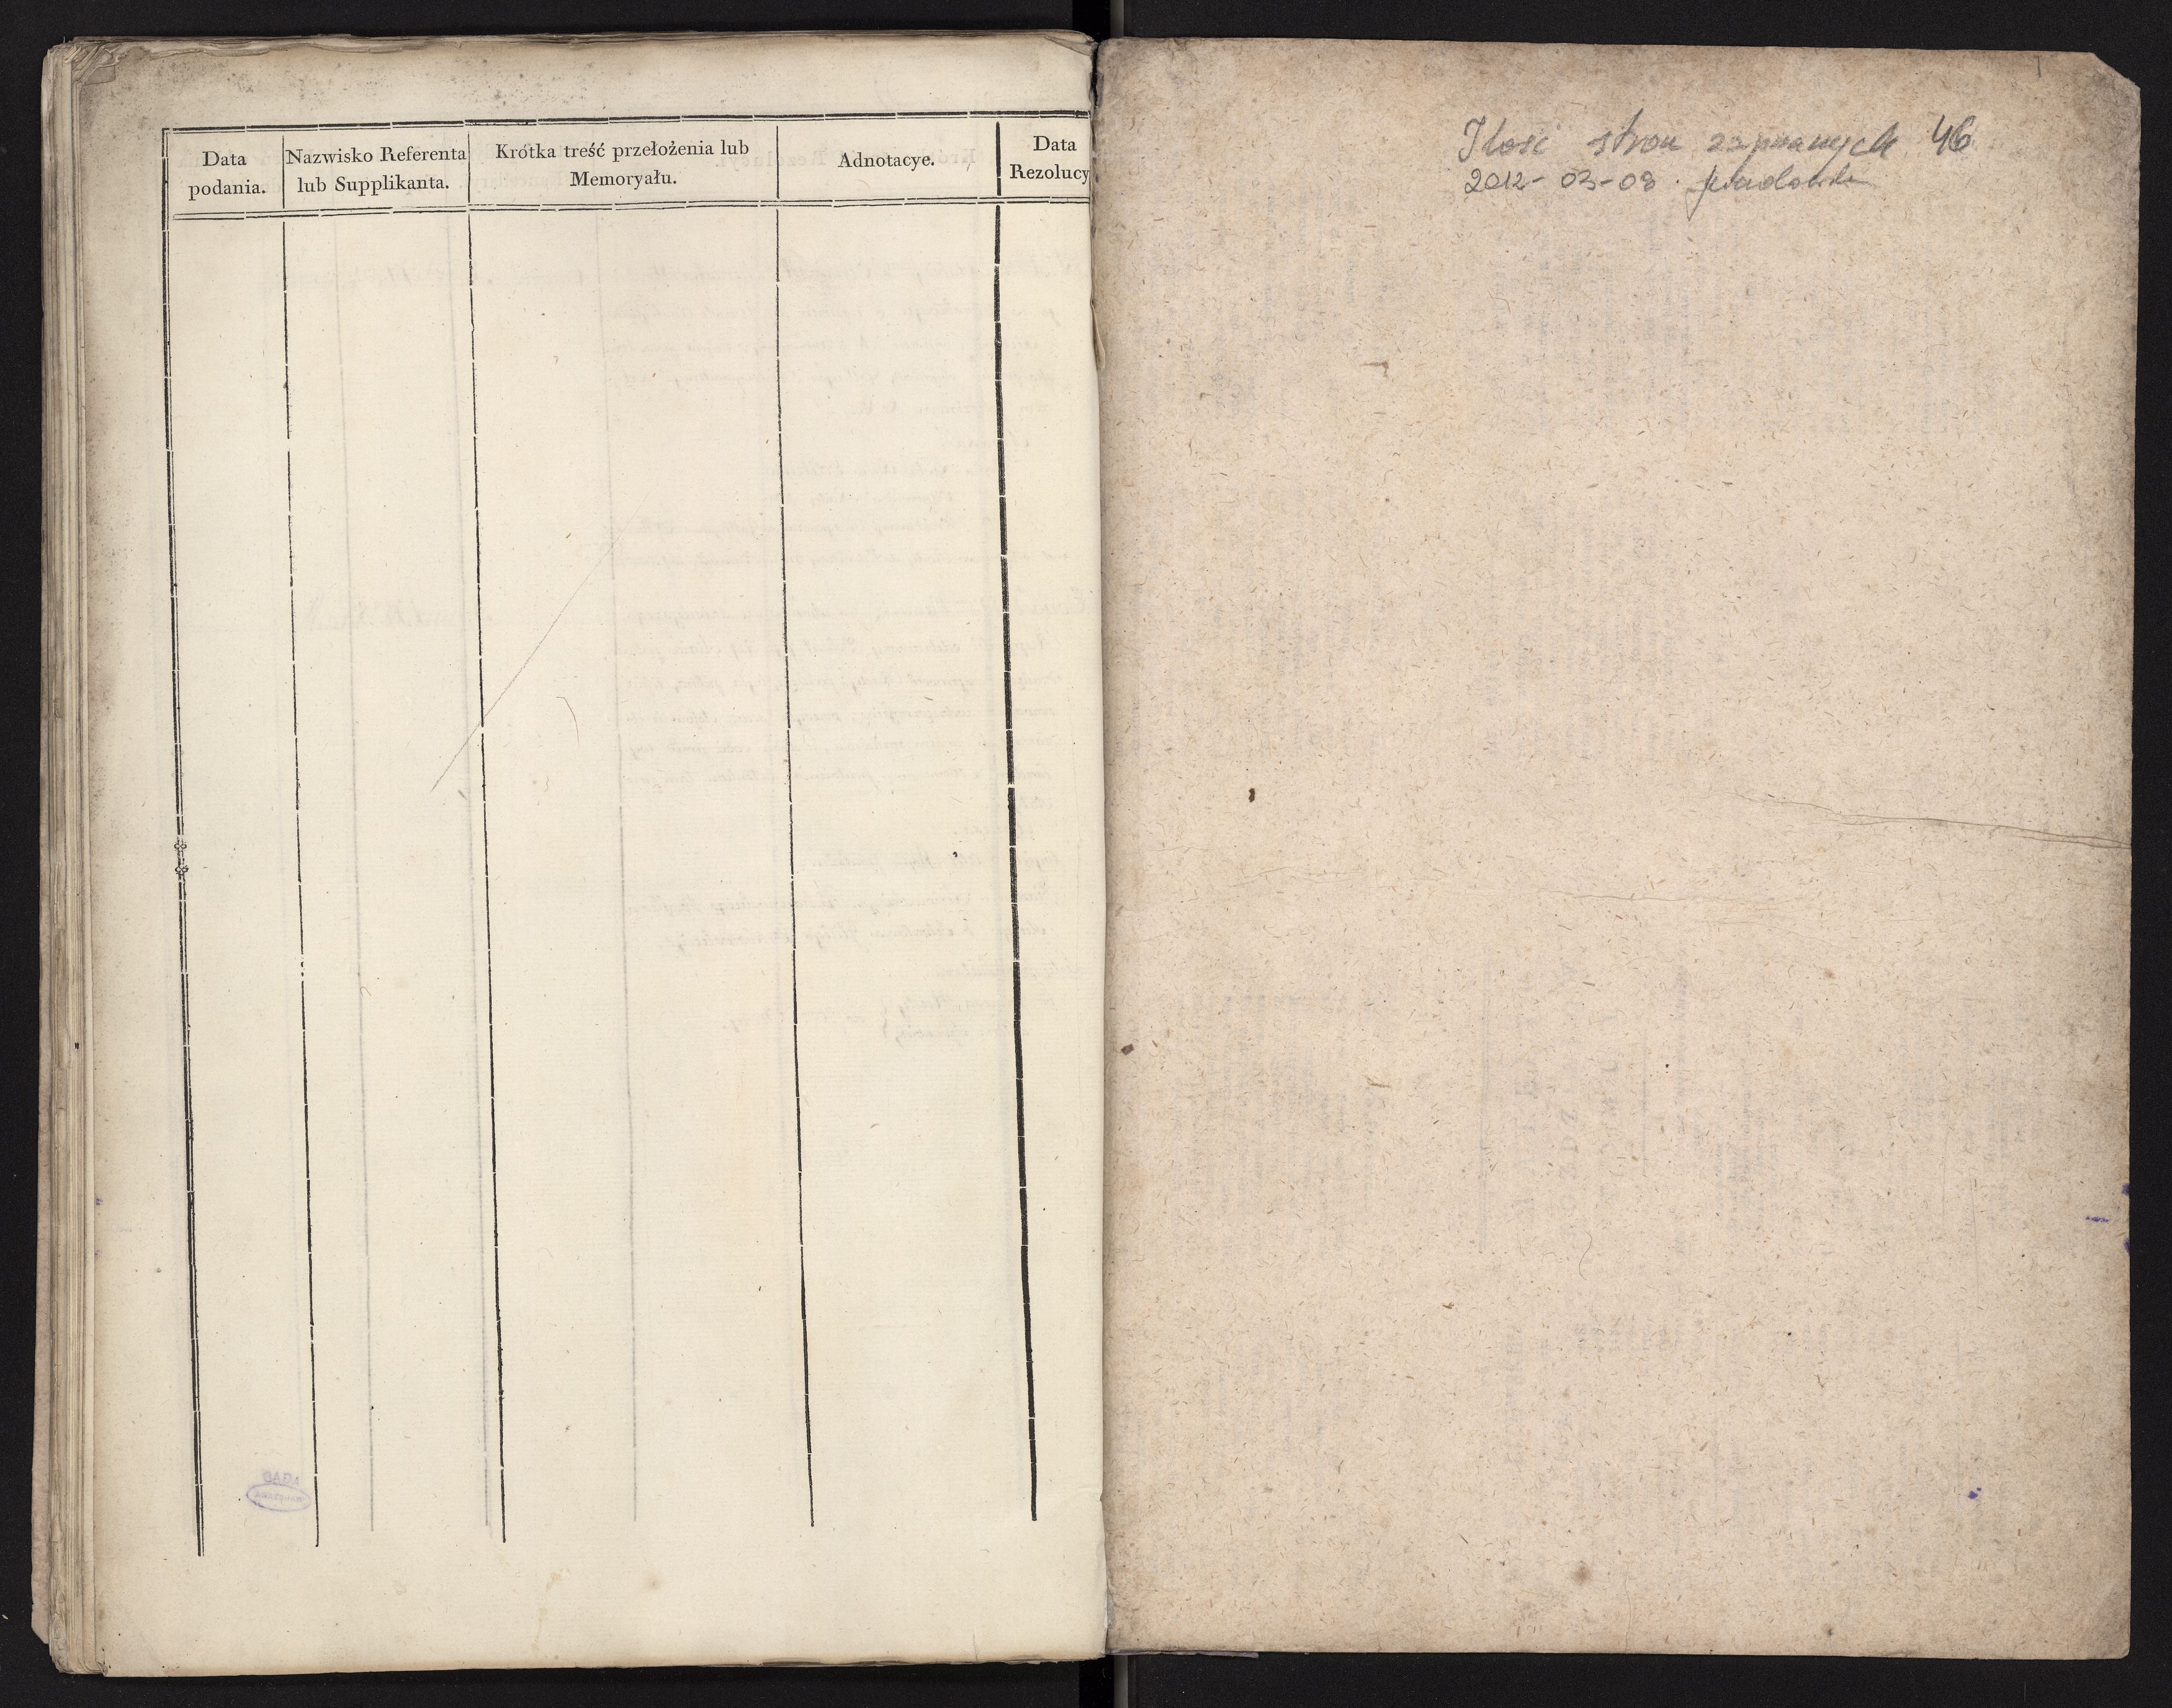 Data
podania.
Nazwisko Referenta
lub Supplikanta.
Krótka treść przełożenia lub
Memoryału.
Adnotacye.
Data
Rezolucy
Ilość stron zapisanych 46
2012-03-08
AGAD